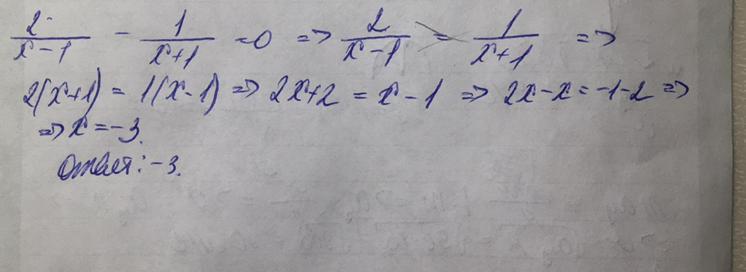 2/(x-1) - 1/(x+1) = 0 => 2/(x-1) = 1/(x+1) =>
2(x+1) = 1(x-1) => 2x+2 = x-1 => 2x-x = -1-2 =>
=> x = -3.
Ответ: -3.